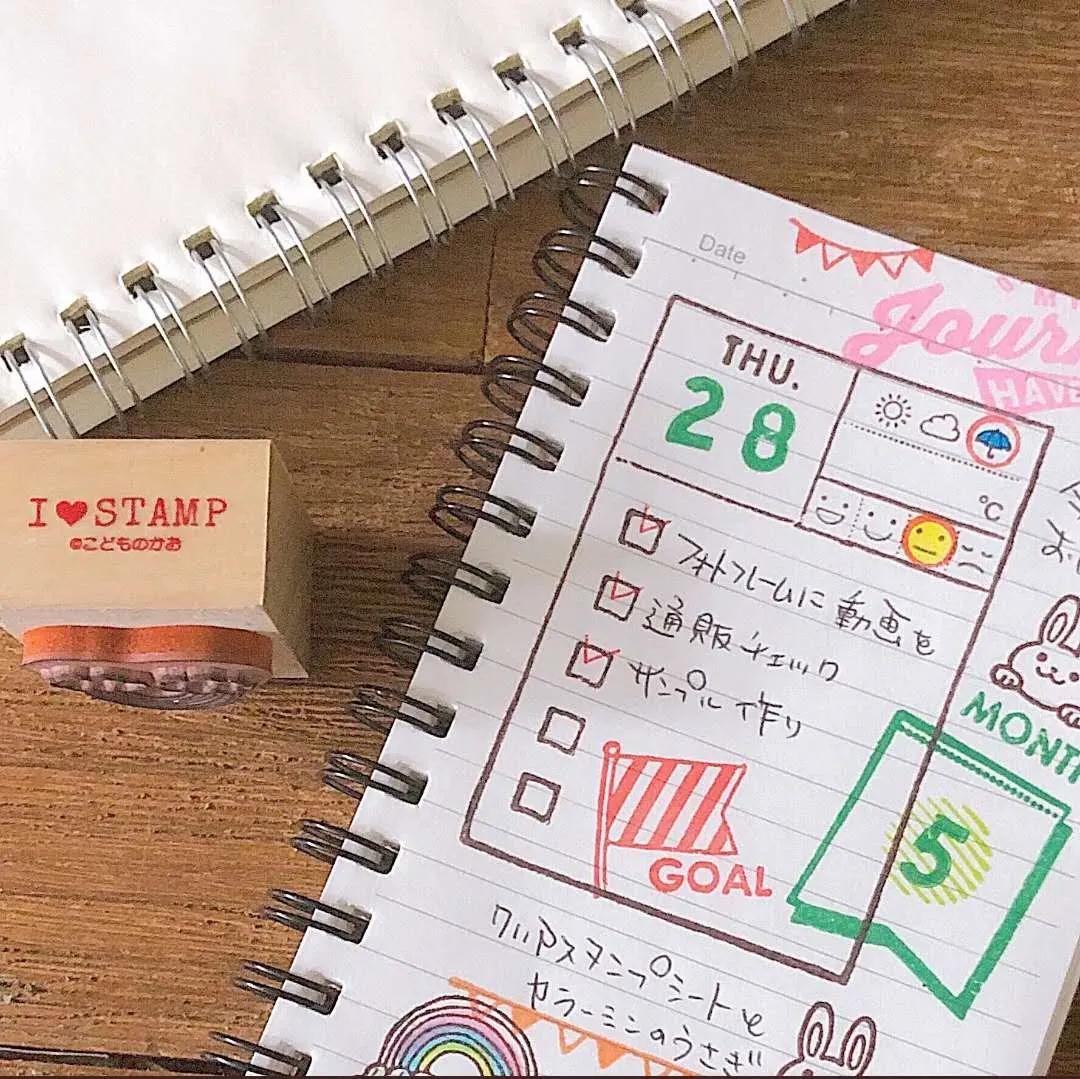 I♥STAMP
©こどものかお
Date
Jour
HAVE
THU.
28
℃
フォトフレームに動画を
通販チェック
サンプル作り
GOAL
MONTH
5
クリアスタンプシートと
セラーミンのうさぎ